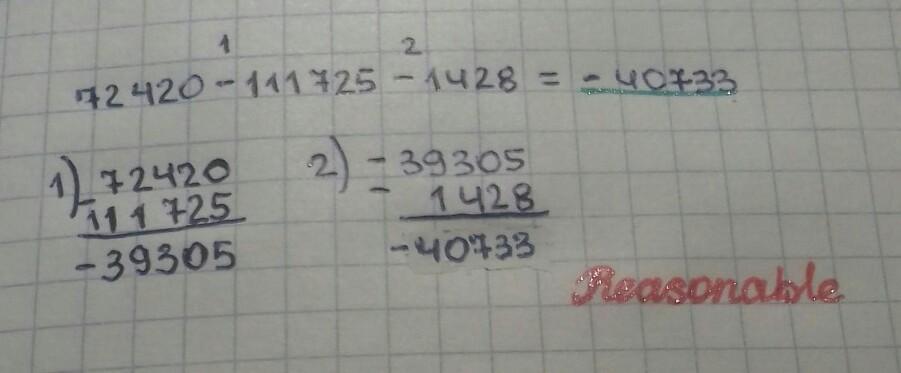 1 2
72420 - 111725 - 1428 = - 40733
1) - 72420 2) - 39305
111725 - 1428
- 39305 - 40733
Reasonable